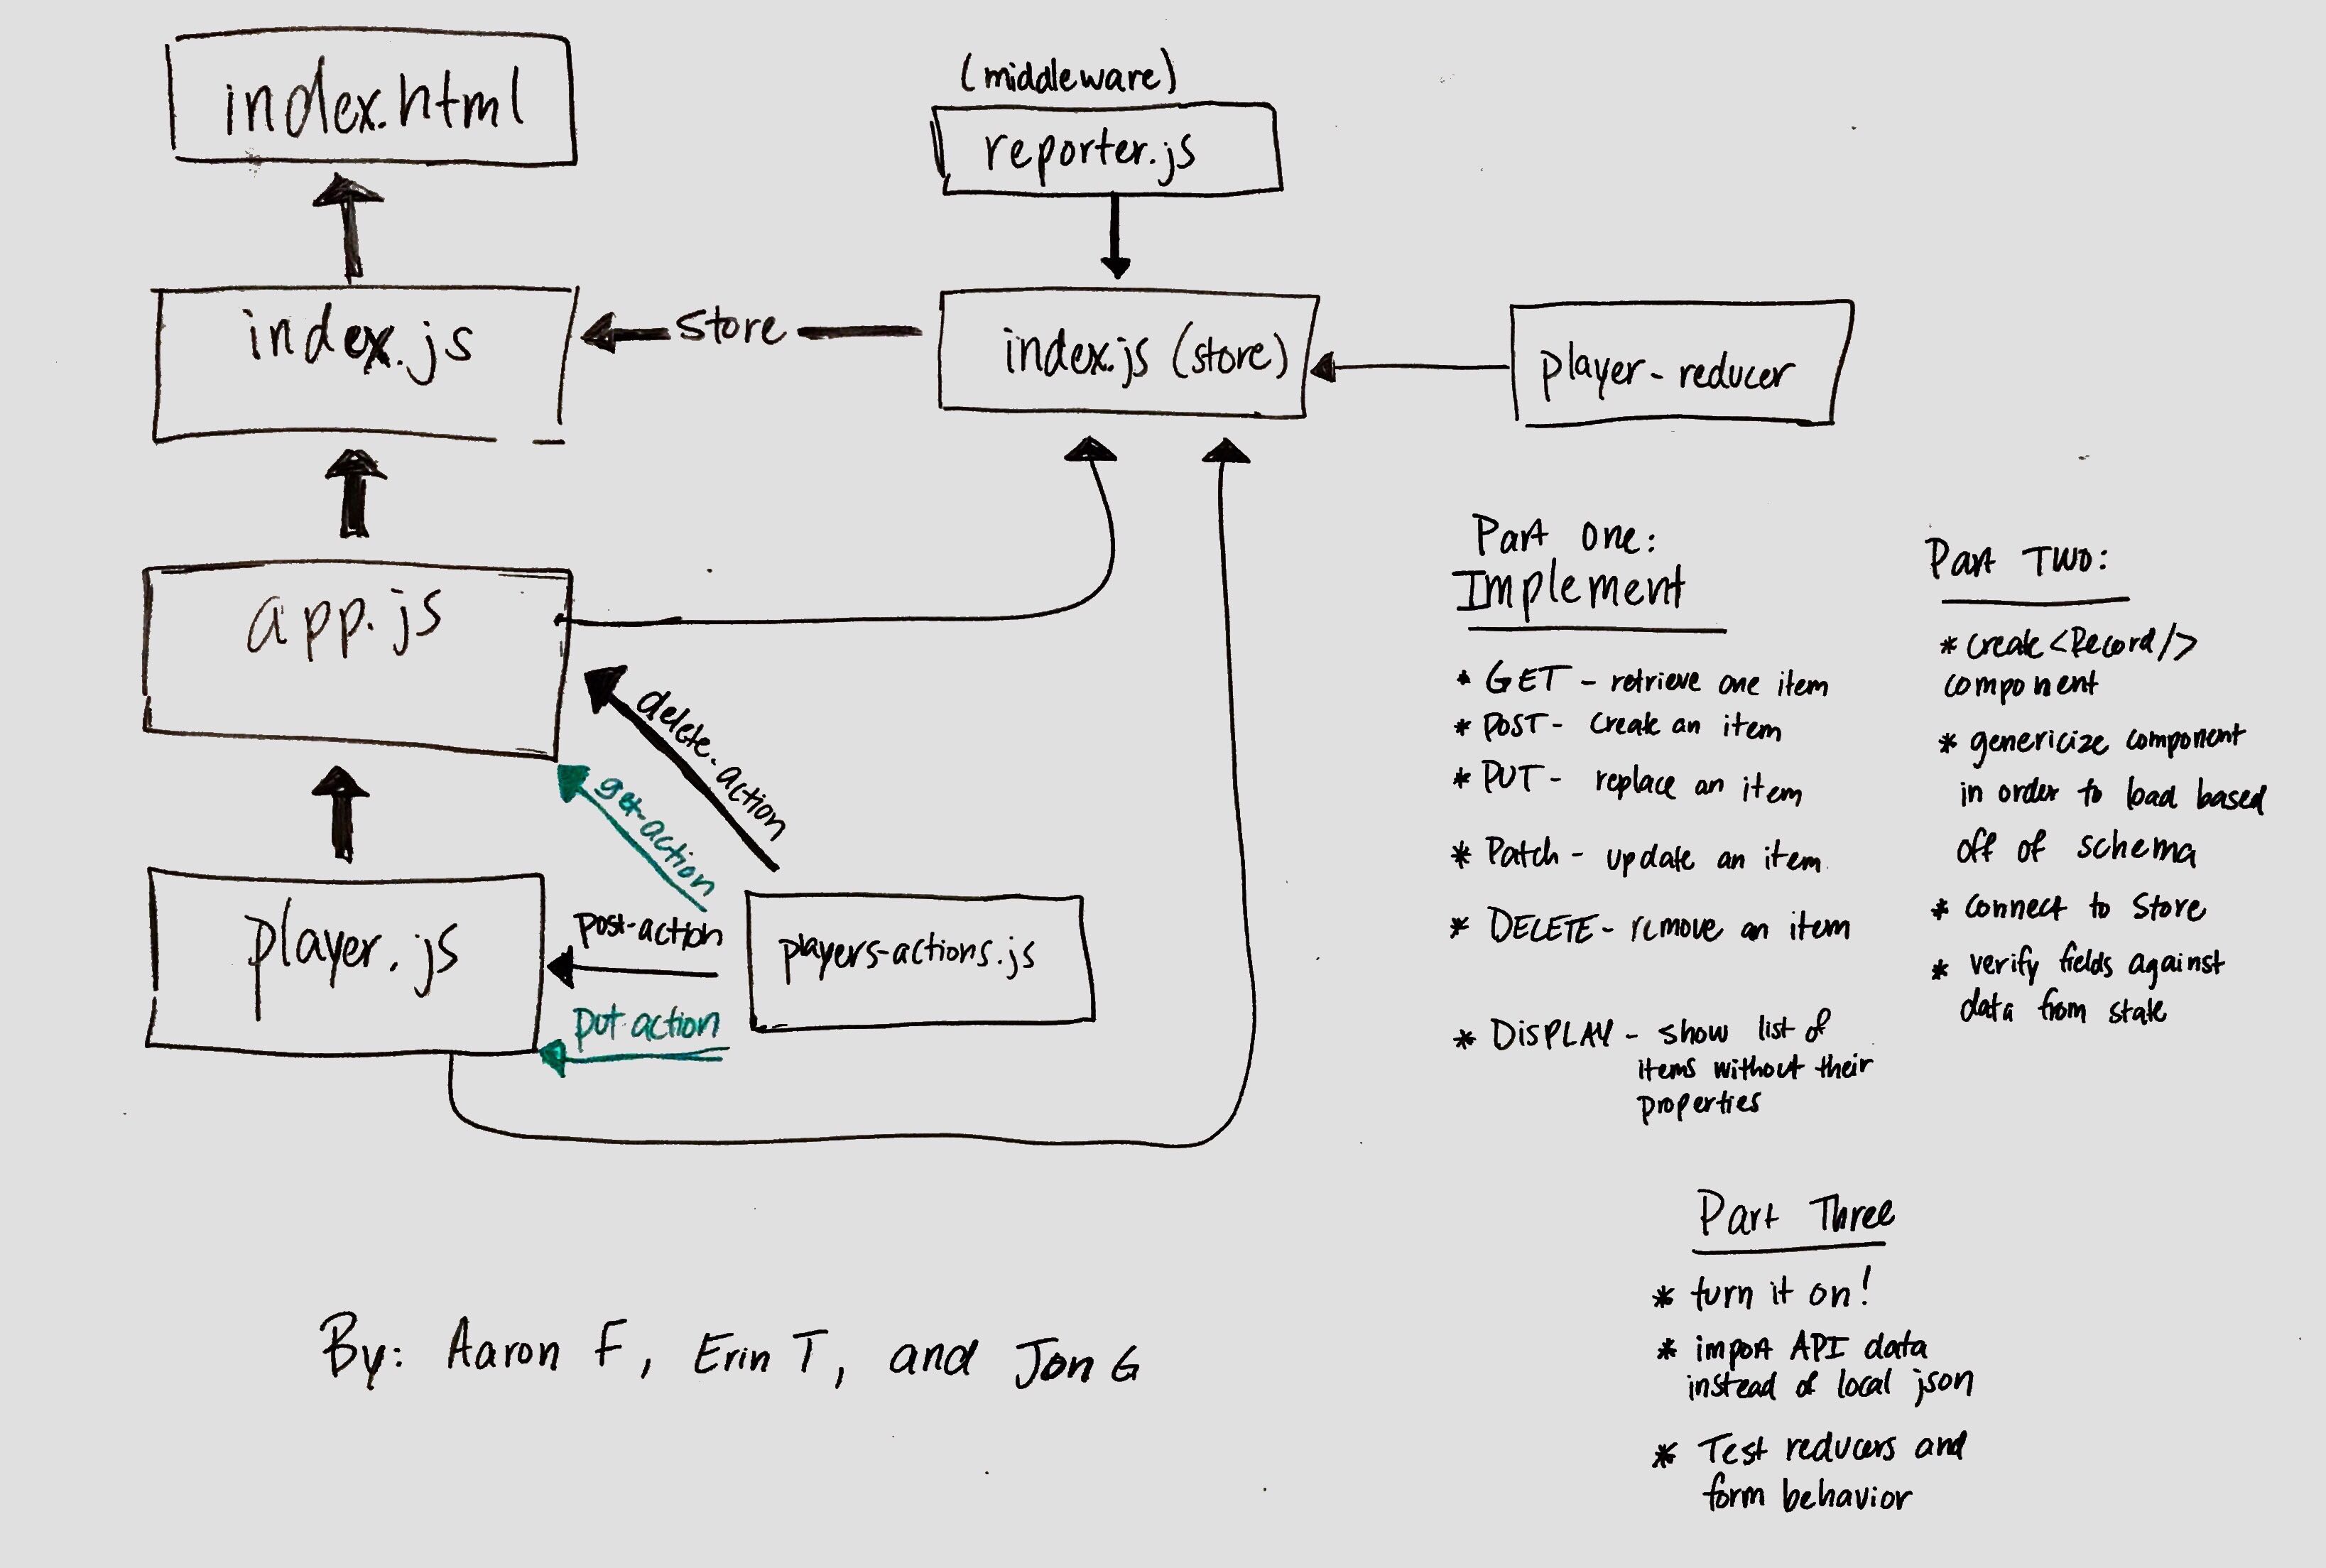 index.html
(middleware)
reporter.js
index.js
store
index.js (store)
player-reducer
app.js
delete-action
get-action
player.js
post-action
put-action
players-actions.js
Part One:
Implement
* GET - retrieve one item
* POST - Create an item
* PUT - replace an item
* Patch - update an item
* DELETE - remove an item
* DISPLAY - show list of
items without their
properties
Part Two:
* create <Record/>
component
* genericize component
in order to load based
off of schema
* connect to store
* verify fields against
data from state
Part Three
* turn it on!
* import API data
instead of local json
* Test reducers and
form behavior
By: Aaron F, Erin T, and Jon G